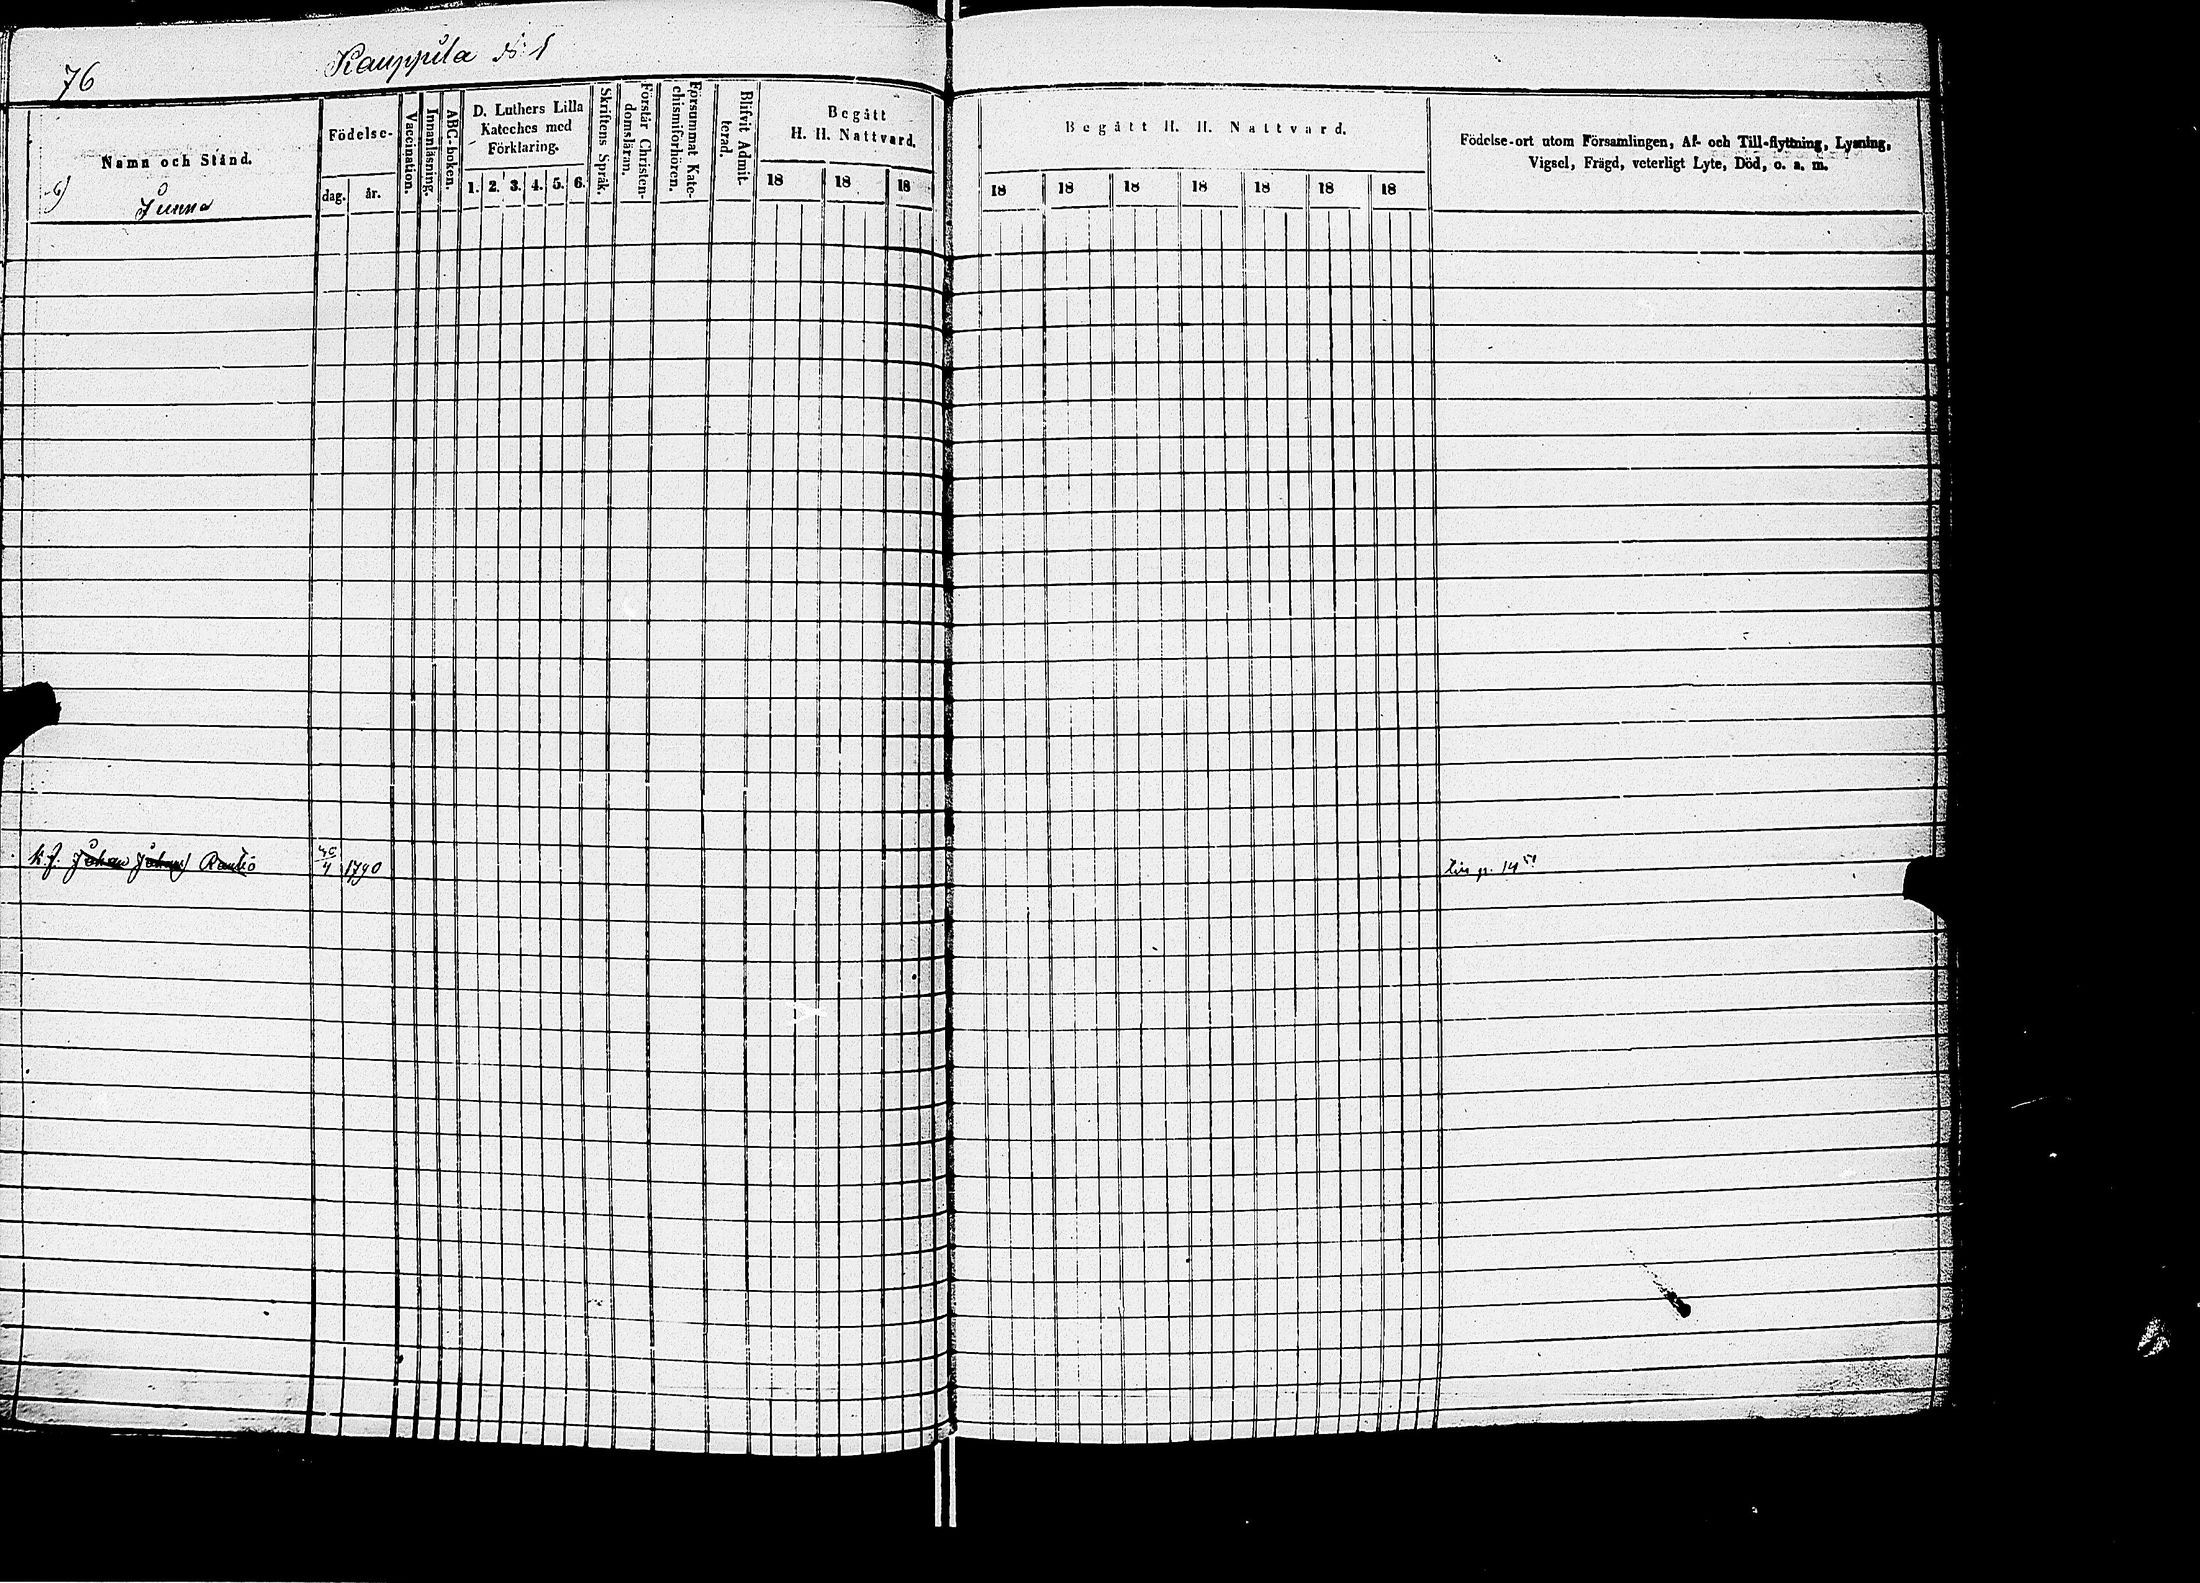 76
Kauppila № 1
Namn och Stånd.
Junna
Födelse-
dag. år.
Vaccination.
Innanläsning.
ABC-boken.
D. Luthers Lilla
Kateches med
Förklaring.
1. 2. 3. 4. 5. 6.
Skriftens Språk.
Förstår Christen-
domsläran.
Försummat Kate-
chismiförhören.
Blifvit Admit-
terad.
Begått
H. H. Nattvard.
18 18 18
Begått H. H. Nattvard.
18 18 18 18 18 18 18
Födelse-ort utom Församlingen, Af- och Till-flyttning, Lysning,
Vigsel, Frägd, veterligt Lyte, Död, o. a. m.
Johan Rautio 1790